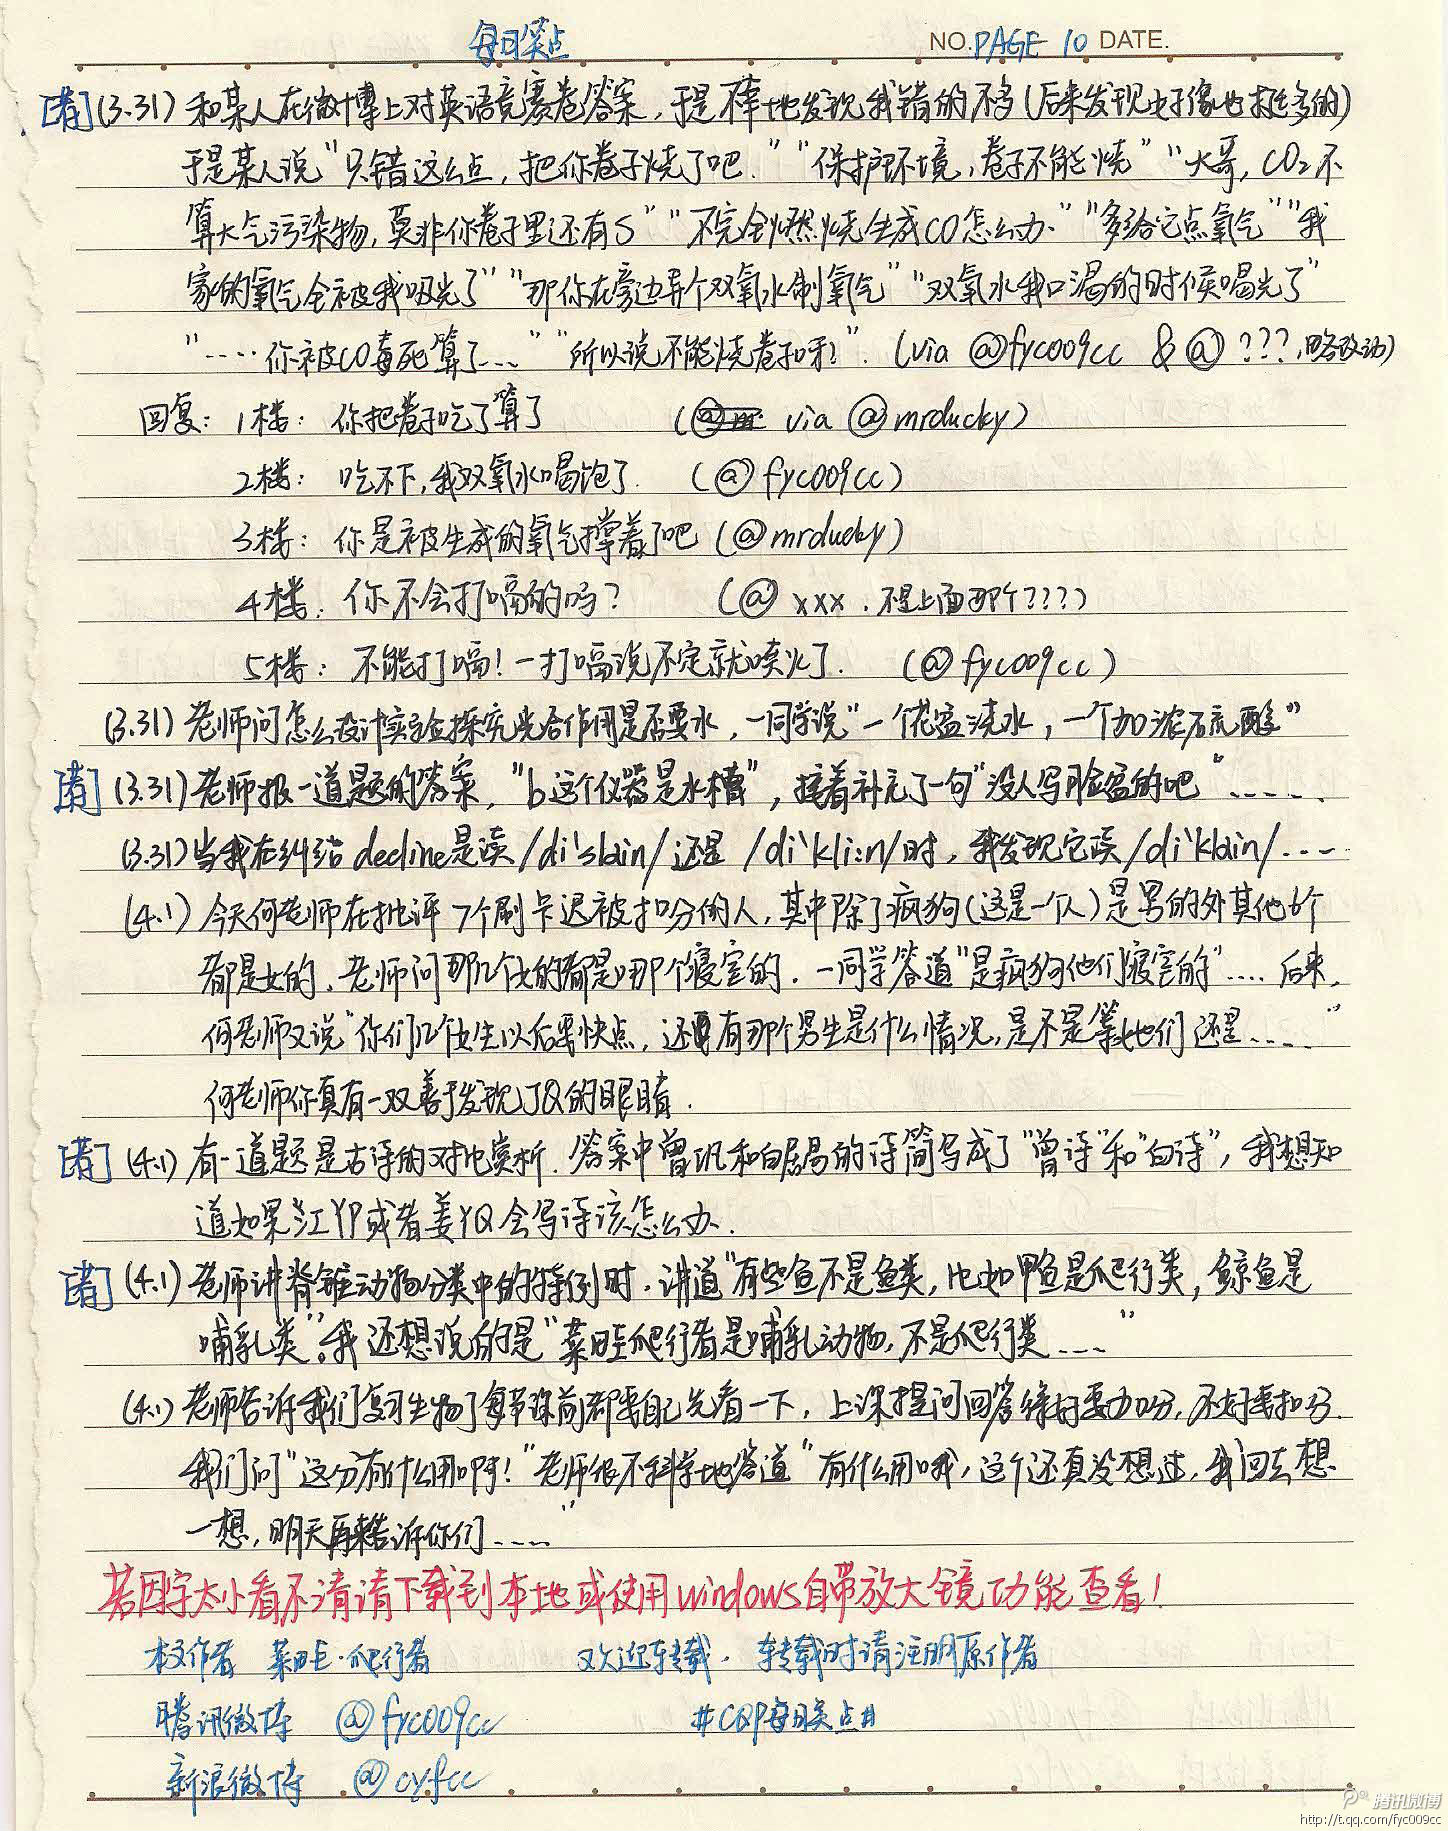 每日笑点
NO. PAGE 10 DATE.
[荐] (3.31) 和某人在微博上对英语竞赛卷答案，于是 地发现我错的不多(后来发现好像也挺多的)
于是某人说"只错这么点，把你卷子烧了吧." "保护环境，卷子不能烧" "大哥，CO₂不
算大气污染物，莫非你卷子里还有S" "不完全燃烧生成CO怎么办" "多给它点氧气" "我
家的氧气全被我吸光了" "那你在旁边弄个双氧水制氧气" "双氧水我口渴的时候喝光了"
"……你被CO毒死算了……" "所以说不能烧卷子呀?". (via @fyc009cc & @???,略改动)
回复: 1楼: 你把卷子吃了算了 (via @mrducky)
2楼: 吃不下,我双氧水喝饱了. (@fyc009cc)
3楼: 你是被生成的氧气撑着了吧 (@mrducky)
4楼: 你不会打嗝的吗? (@xxx.不是上面那个????)
5楼: 不能打嗝!一打嗝说不定就喷火了. (@fyc009cc)
(3.31) 老师问怎么设计实验探究光合作用是否要水，一同学说"一个花盆浇水，一个加浓硫酸"
[荐] (3.31) 老师报一道题的答案，"b这个仪器是水槽"，接着补充了一句"没人写脸盆的吧"……
(3.31) 当我在纠结decline是读/di'slain/还是/di'kli:n/时，我发现它读/di'klain/……
(4.1) 今天何老师在批评7个刷卡迟被扣分的人，其中除了疯狗(这是一个人)是男的外其他6个
都是女的，老师问那几个女的都是哪个寝室的．一同学答道"是疯狗他们寝室的"……后来，
何老师又说"你们几个女生以后要快点，还有那个男生是什么情况，是不是等她们还是……"
何老师你真有一双善于发现JQ的眼睛．
[荐] (4.1) 有一道题是古诗的对比赏析．答案中曾巩和白居易的诗简写成了"曾诗"和"白诗"，我想知
道如果江YP或者姜YQ会写诗该怎么办．
[荐] (4.1) 老师讲脊椎动物分类中的特例时．讲道"有些鱼不是鱼类，比如甲鱼是爬行类，鲸鱼是
哺乳类"．我还想说的是"菜田三爬行者是哺乳动物，不是爬行类……"
(4.1) 老师告诉我们复习生物了每节课前都要自己先看一下，上课提问回答得好要加分，不好要扣分．
我们问"这分有什么用啊!"老师很不科学地答道"有什么用哦，这个还真没想过，我回去想
一想，明天再来告诉你们……"
若因字太小看不清请下载到本地或使用windows自带放大镜功能查看!
本文作者 爬行者 欢迎转载．转载时请注明原作者
腾讯微博 @fyc009cc #CQP每日笑点#
新浪微博 @cyfcc
腾讯微博
http://t.qq.com/fyc009cc